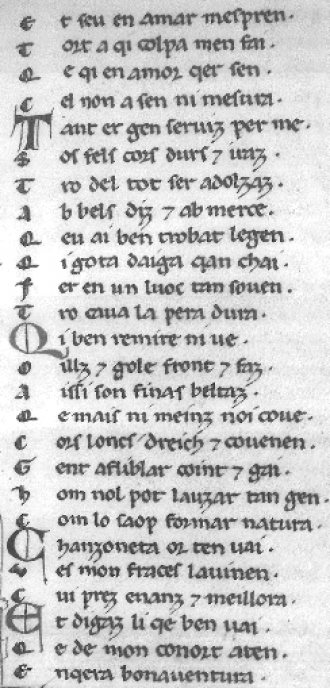 E t seu en amar mespren.
T ort a qi colpa men fai.
Q e qi en amor qer sen.
C el non a sen ni mesura.
T ant er gen seruiz per me.
S os fels cors durs ⁊ iraz.
T ro del tot ser adolzaz.
A b bels diz ⁊ ab merce.
Q eu ai ben trobat legen.
Q i gota daiga qan chai.
F er en un luoc tan souen.
T ro caua la pera dura.
Q i ben remire ni ue.
O illz ⁊ gole front ⁊ faz.
A issi son finas beltaz.
Q e mais ni meinz noi coue.
C ors loncs dreich ⁊ couenen.
G ent afublar coint ⁊ gai.
H om nol pot lauzar tan gen.
C om lo saop formar natura.
C hanzoneta or ten uai.
V es mon fraces lauinen.
C ui prez enanz ⁊ meillora.
E t digaz li qe ben uai.
Q e de mon conort aten.
E nqera bonauentura.